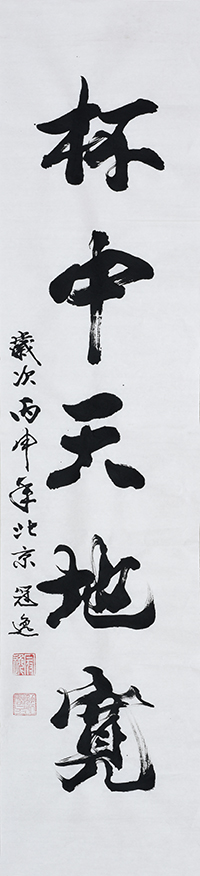 杯中天地寬
歲次丙申年北京冠逸